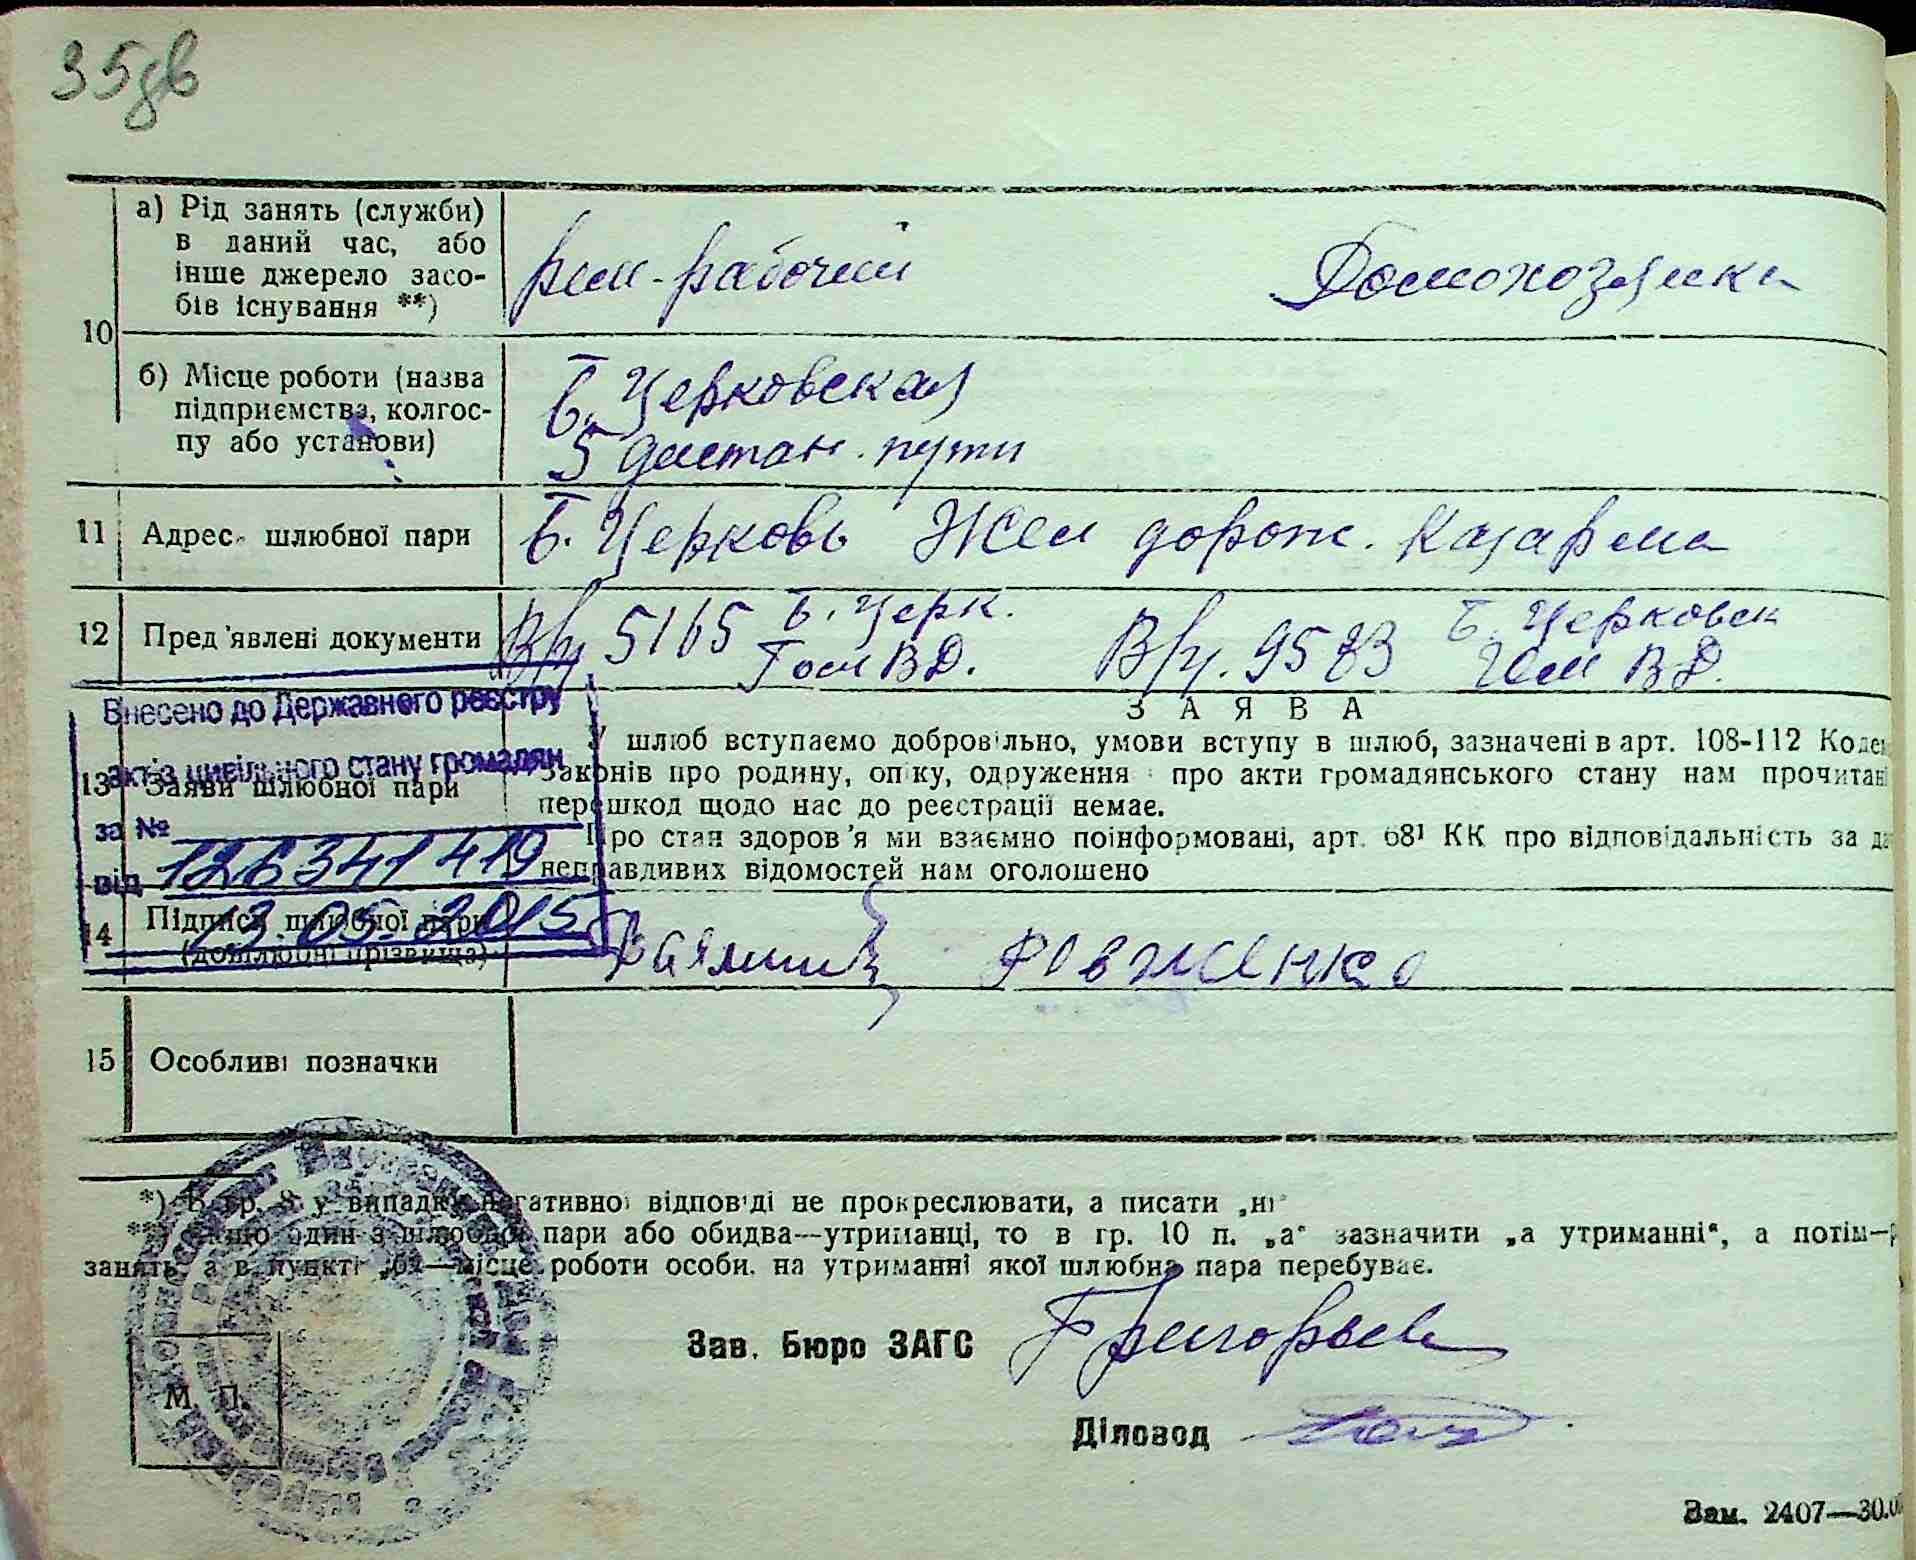 35
10
а) Рід занять (служби)
в даний час, або
інше джерело засо-
бів існування **)
рем-рабочий
Домохозяйка
б) Місце роботи (назва
підприємства, колгос-
пу або установи)
Б. Церковская
5 дистан. пути
11 Адрес шлюбної пари
Б. Церковь Жел дорож. Казарма
12 Пред'явлені документи
В/у 5165 Б. Церк.
Гом ВД.
В/у. 9583 Б. Церковск
ВД.
Внесено до Державного реєстру
актів цивільного стану громадян
за № 126341419
від 13.05.2015
ЗАЯВА
13 Заяви шлюбної пари
У шлюб вступаємо добровільно, умови вступу в шлюб, зазначені в арт. 108-112 Кодек
законів про родину, опіку, одруження і про акти громадянського стану нам прочитані
перешкод щодо нас до реєстрації немає.
Про стан здоров'я ми взаємно поінформовані, арт. 68¹ КК про відповідальність за да
неправдивих відомостей нам оголошено
14 Підписи шлюбної пари
(дошлюбні прізвища)
Ровженко
15 Особливі позначки
*) В гр. 8 у випадку негативної відповіді не прокреслювати, а писати „ні"
**) Якщо один з шлюбної пари або обидва—утриманці, то в гр. 10 п. „а" зазначити „а утриманні", а потім—р
занять, а в пункті „б"—місце роботи особи, на утриманні якої шлюбна пара перебуває.
Зав. Бюро ЗАГС Григорьев
М. П.
Діловод
Зам. 2407—30.